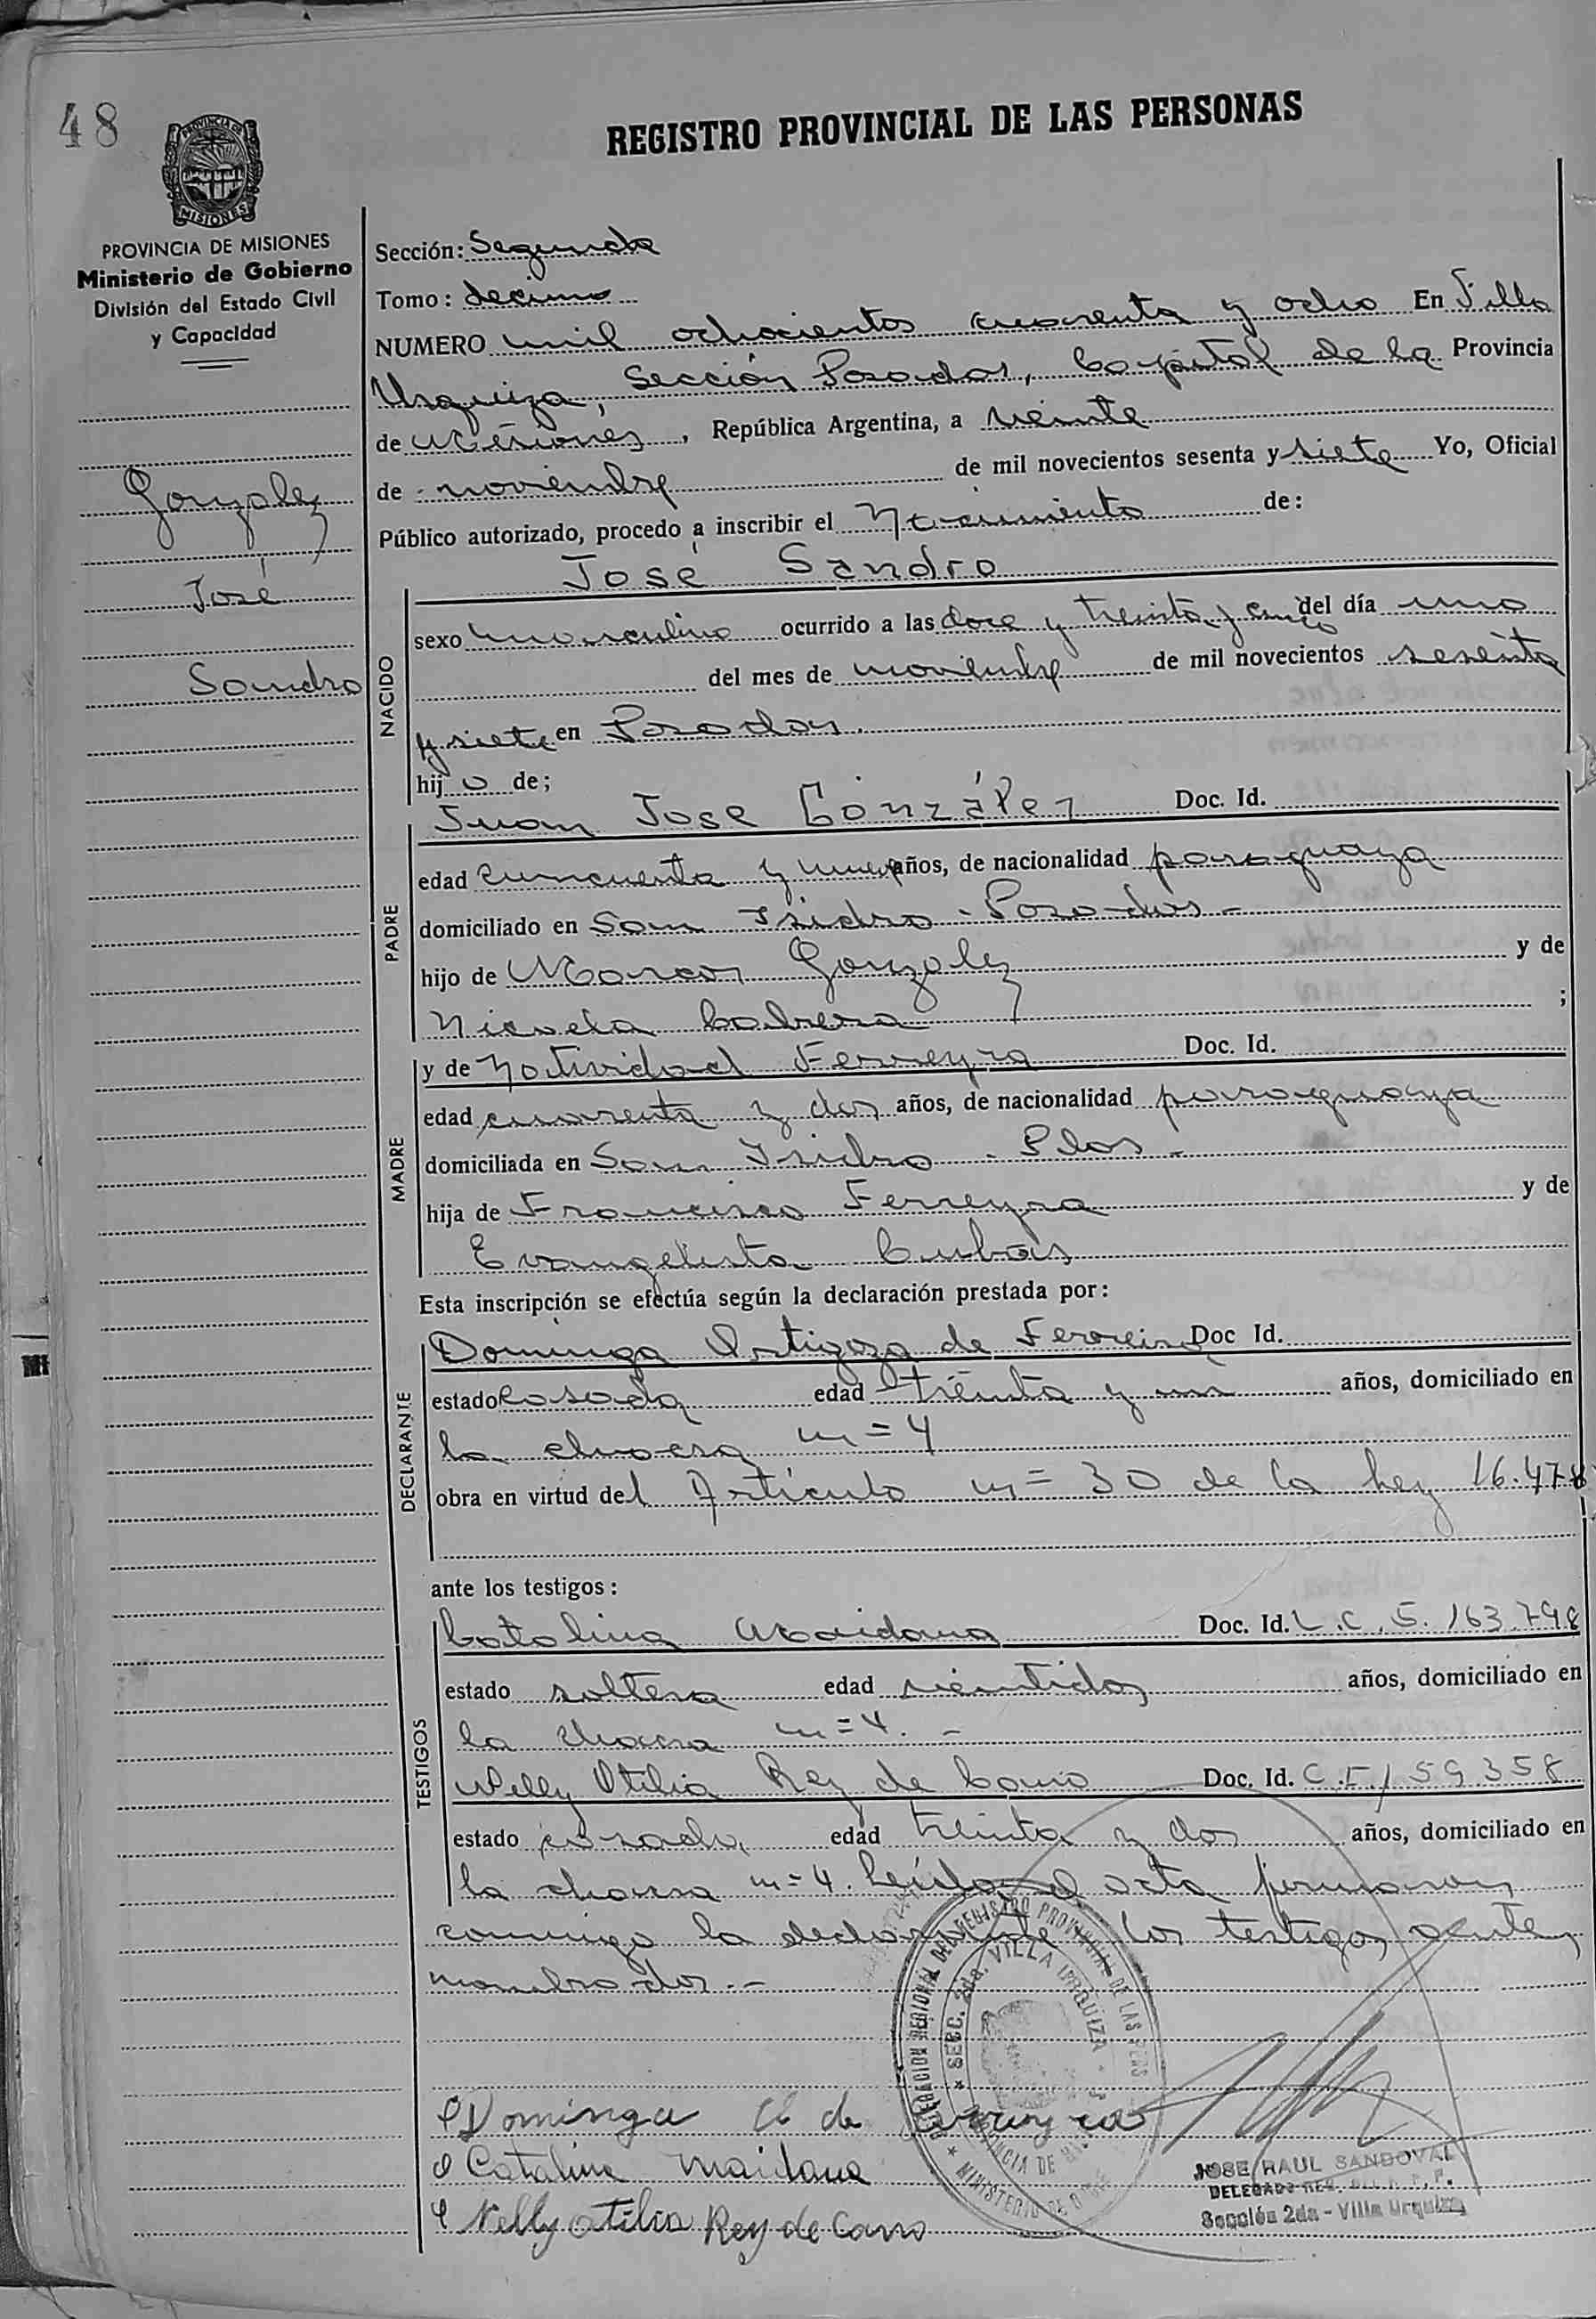 48
REGISTRO PROVINCIAL DE LAS PERSONAS
PROVINCIA DE
MISIONES
PROVINCIA DE MISIONES
Ministerio de Gobierno
División del Estado Civil
y Capacidad
Gonzalez
José
Sandro
Sección: Segunda
Tomo: decimo
NUMERO mil ochocientos cuarenta y ocho En Villa
Urquiza, Sección Posadas, Capital de la Provincia
de Misiones, República Argentina, a veinte
de noviembre de mil novecientos sesenta y siete Yo, Oficial
Público autorizado, procedo a inscribir el Nacimiento de:
José Sandro
NACIDO
sexo masculino ocurrido a las doce y treinta y cinco del día uno
del mes de noviembre de mil novecientos sesenta
y siete en Posadas.
hijo de;
PADRE
Juan José González Doc. Id.
edad cuncuenta y nueve años, de nacionalidad paraguaya
domiciliado en San Isidro - Posadas -
hijo de Marcos Gonzalez y de
Nicuela Cabrera ;
MADRE
y de Natividad Ferreyra Doc. Id.
edad cuarenta y dos años, de nacionalidad paraguaya
domiciliada en San Isidro - Pdas -
hija de Francisco Ferreyra y de
Evangelista Cubas
Esta inscripción se efectúa según la declaración prestada por:
DECLARANTE
Dominga Ortigoza de Ferreira Doc Id.
estado casada edad treinta y un años, domiciliado en
la chacra n=4
obra en virtud del Artículo n= 30 de la ley 16.478
ante los testigos:
TESTIGOS
Catalina Maidana Doc. Id. L.C. 5.163.798
estado soltera edad veintidos años, domiciliado en
la chacra n=4. -
Nelly Otilia Rey de Cano Doc. Id. C.I. 159.358
estado casada, edad treinta y dos años, domiciliado en
la chacra n=4. Leída el acta firmaron
conmigo la declarante los testigos antes
nombrados.-
DELEGACION REGIONAL DEL REGISTRO PROVINCIAL DE LAS PERS
* SECC. 2da. VILLA URQUIZA -
MINISTERIO DE
Dominga de Ferreyra
Catalina Maidana
Nelly Otilia Rey de Cano
JOSE RAUL SANDOVAL
DELEGADO REG.
Sección 2da - Villa Urquiza